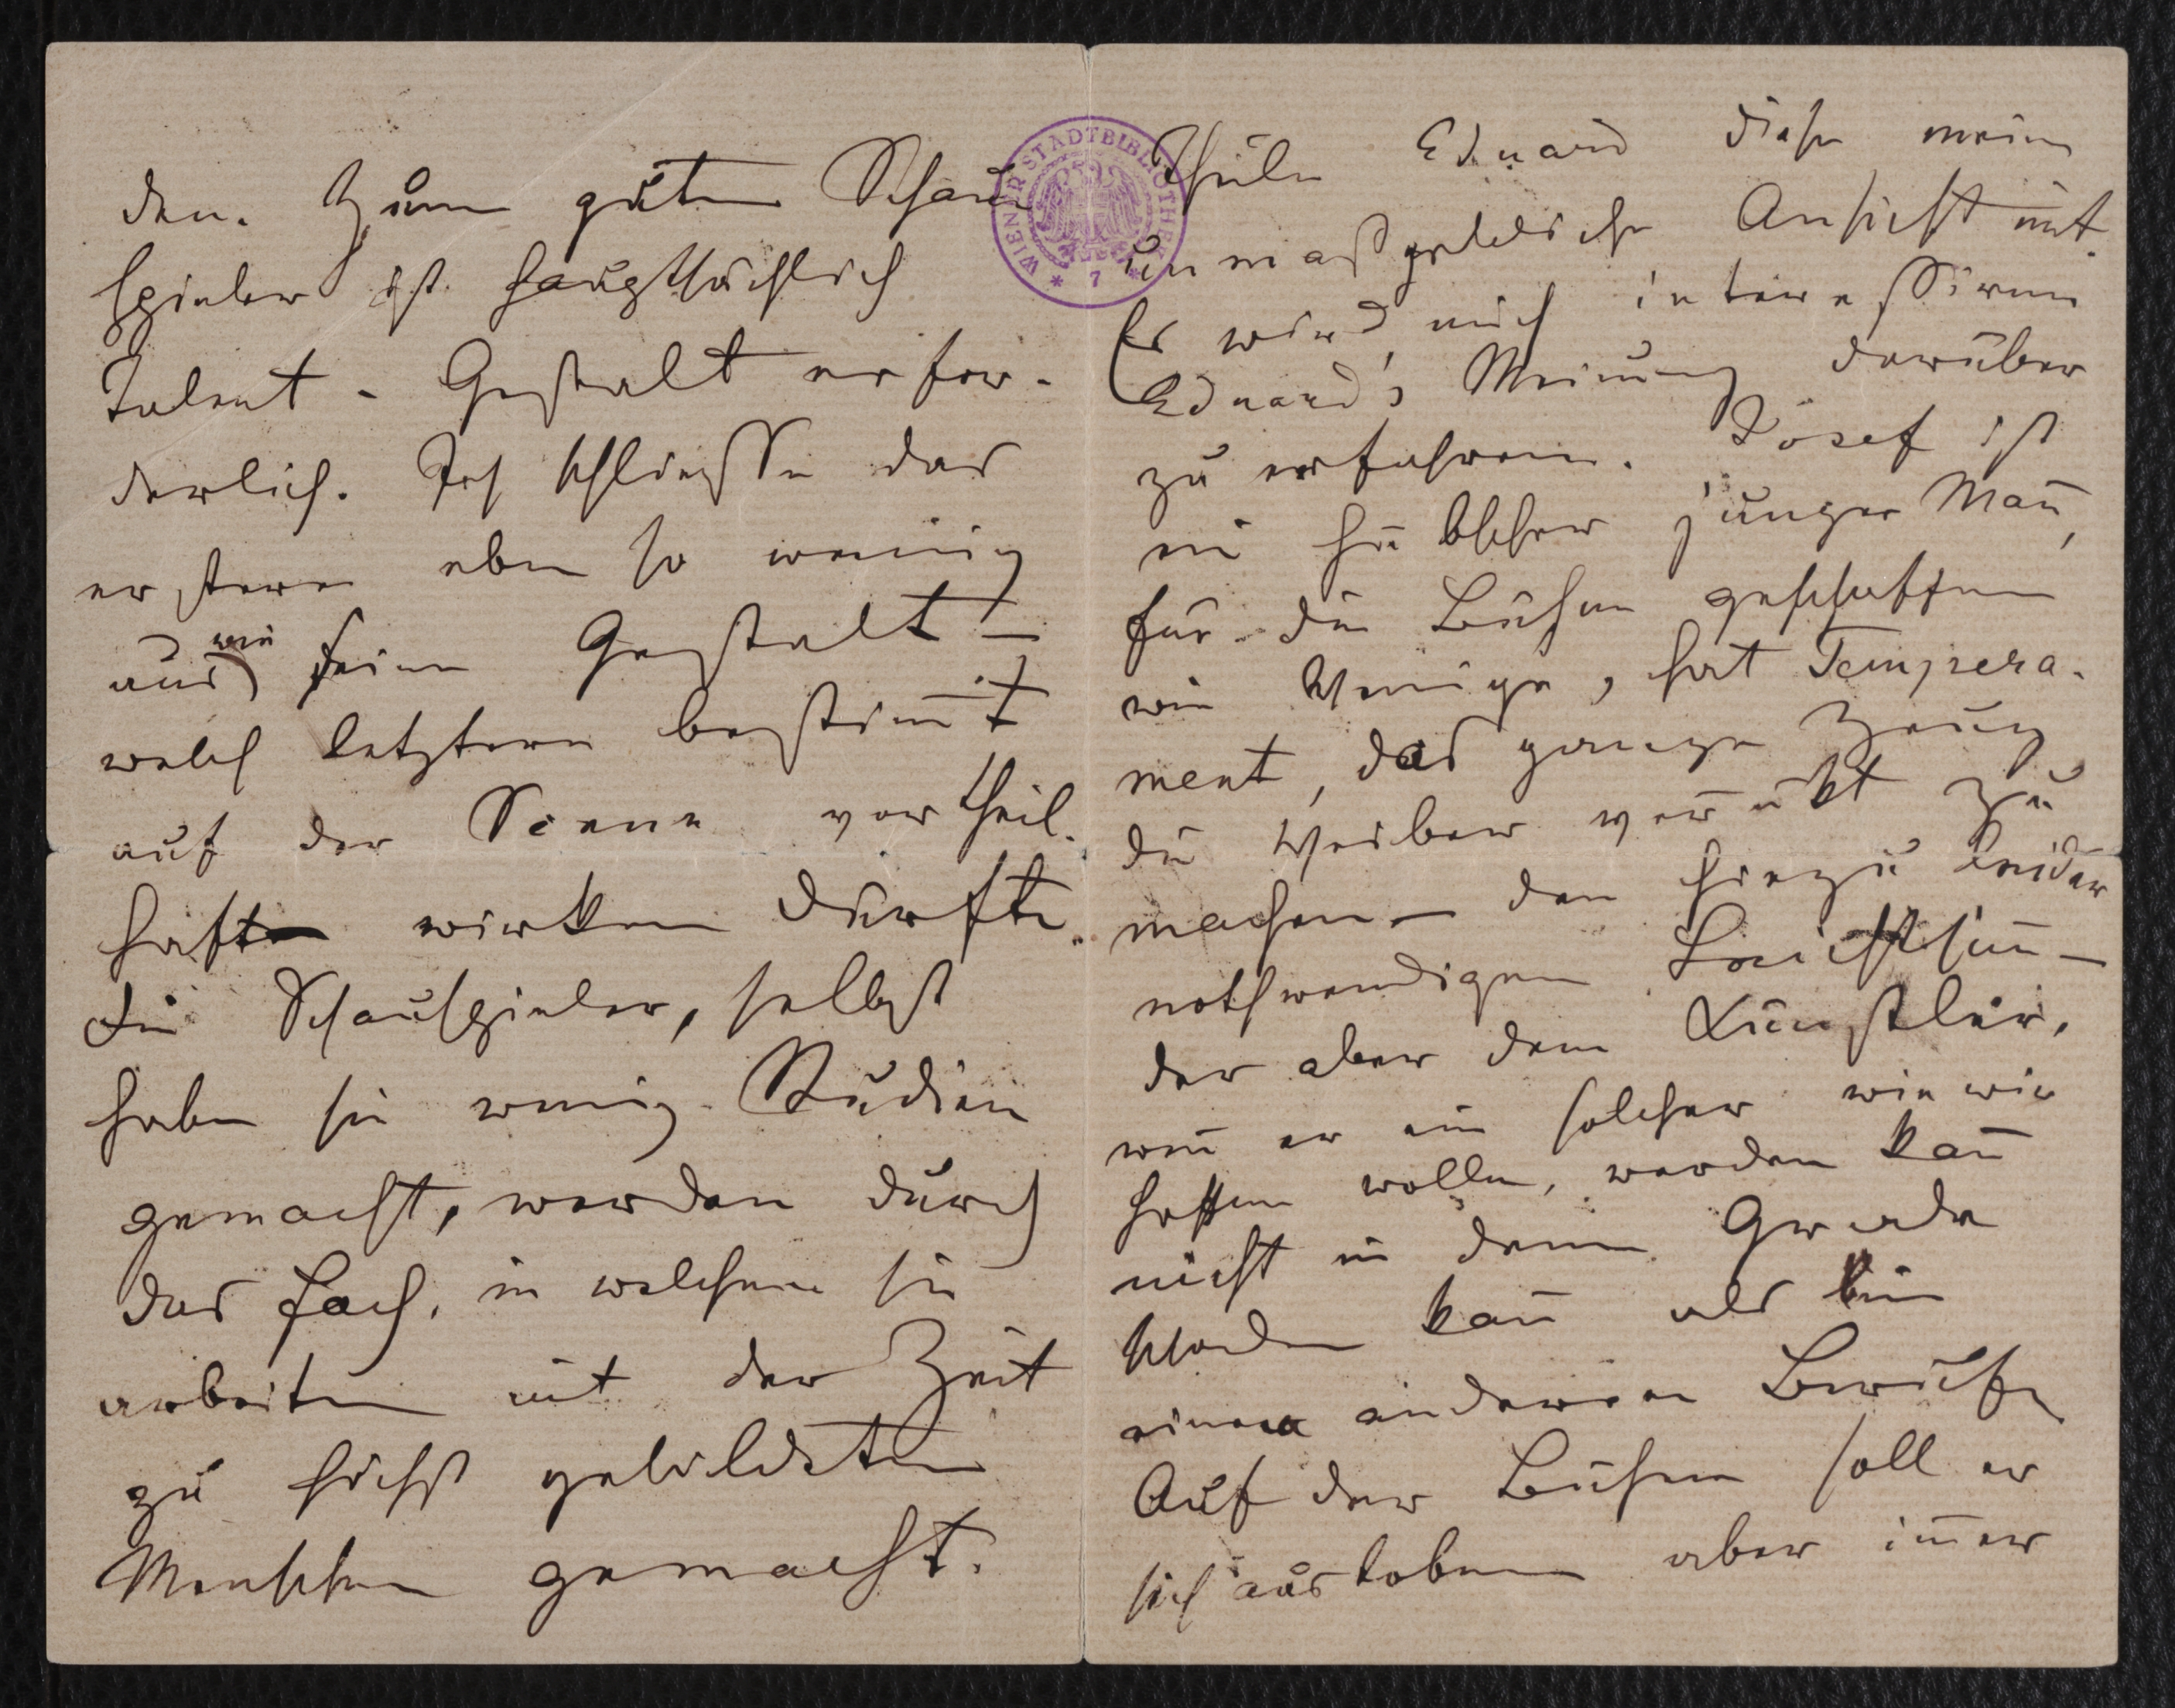 den. Zum guten Schau
spieler ist hauptsächlich
Talent - Gestalt erfor-
derlich. Ich schliesse das
erstere eben so wenig
aus wie seine Gestalt –
welch letztere bestim̄t
auf der Scene vortheil-
haft wirken dürfte.
Die Schauspieler, selbst
haben sie wenig Studien
gemacht, werden durch
das Fach, in welchem sie
arbeiten mit der Zeit
zu höchst gebildeten
Menschen gemacht.
Theile Eduard diese meine
unmaßgebliche Ansicht mit.
Es wird mich interessiren
Eduard's Meinung darüber
zu erfahren. Josef ist
ein hübscher junger Man̄,
für die Bühne geschaffen
wie Wenige, hat Tempera-
ment, das ganze Zeug
die Weiber verrükt zu
machen – den hiezu leider
nothwendigen Leichtsin̄ –
der aber dem Künstler,
wen̄ er ein solcher wie wir
hoffen wollen, werden kan̄
nicht in dem Grade
schaden kan̄ als bei
einem anderen Berufe
Auf der Bühne soll er
sich austoben aber im̄er
WIENER STADTBIBLIOTHEK
* 7 *